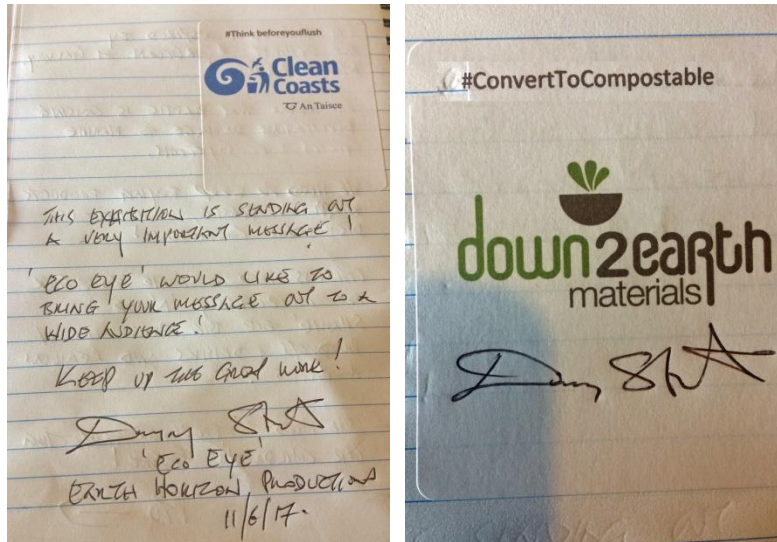 #Think beforeyouflush
Clean
Coasts
An Taisce
THIS EXHIBITION IS SENDING OUT
A VERY IMPORTANT MESSAGE!
'ECO EYE' WOULD LIKE TO
BRING YOUR MESSAGE OUT TO A
WIDE AUDIENCE!
KEEP UP THE GREAT WORK!
'ECO EYE'
EARTH HORIZON PRODUCTIONS
11/6/17.
#ConvertToCompostable
down2earth
materials